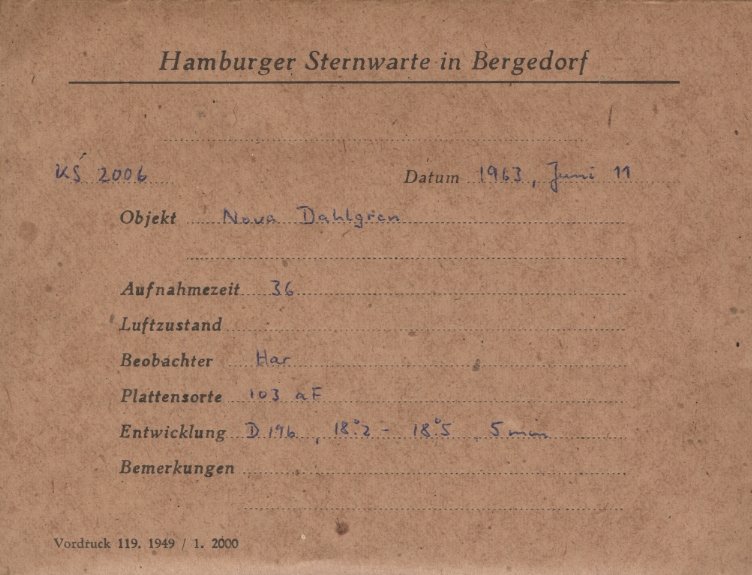 Hamburger Sternwarte in Bergedorf
KŚ 2006 Datum 1963, Juni 11
Objekt Nova Dahlgren
Aufnahmezeit 36
Luftzustand
Beobachter Har
Plattensorte 103 aF
Entwicklung D 196, 18°2 - 18°5, 5 min
Bemerkungen
Vordruck 119. 1949 / 1. 2000